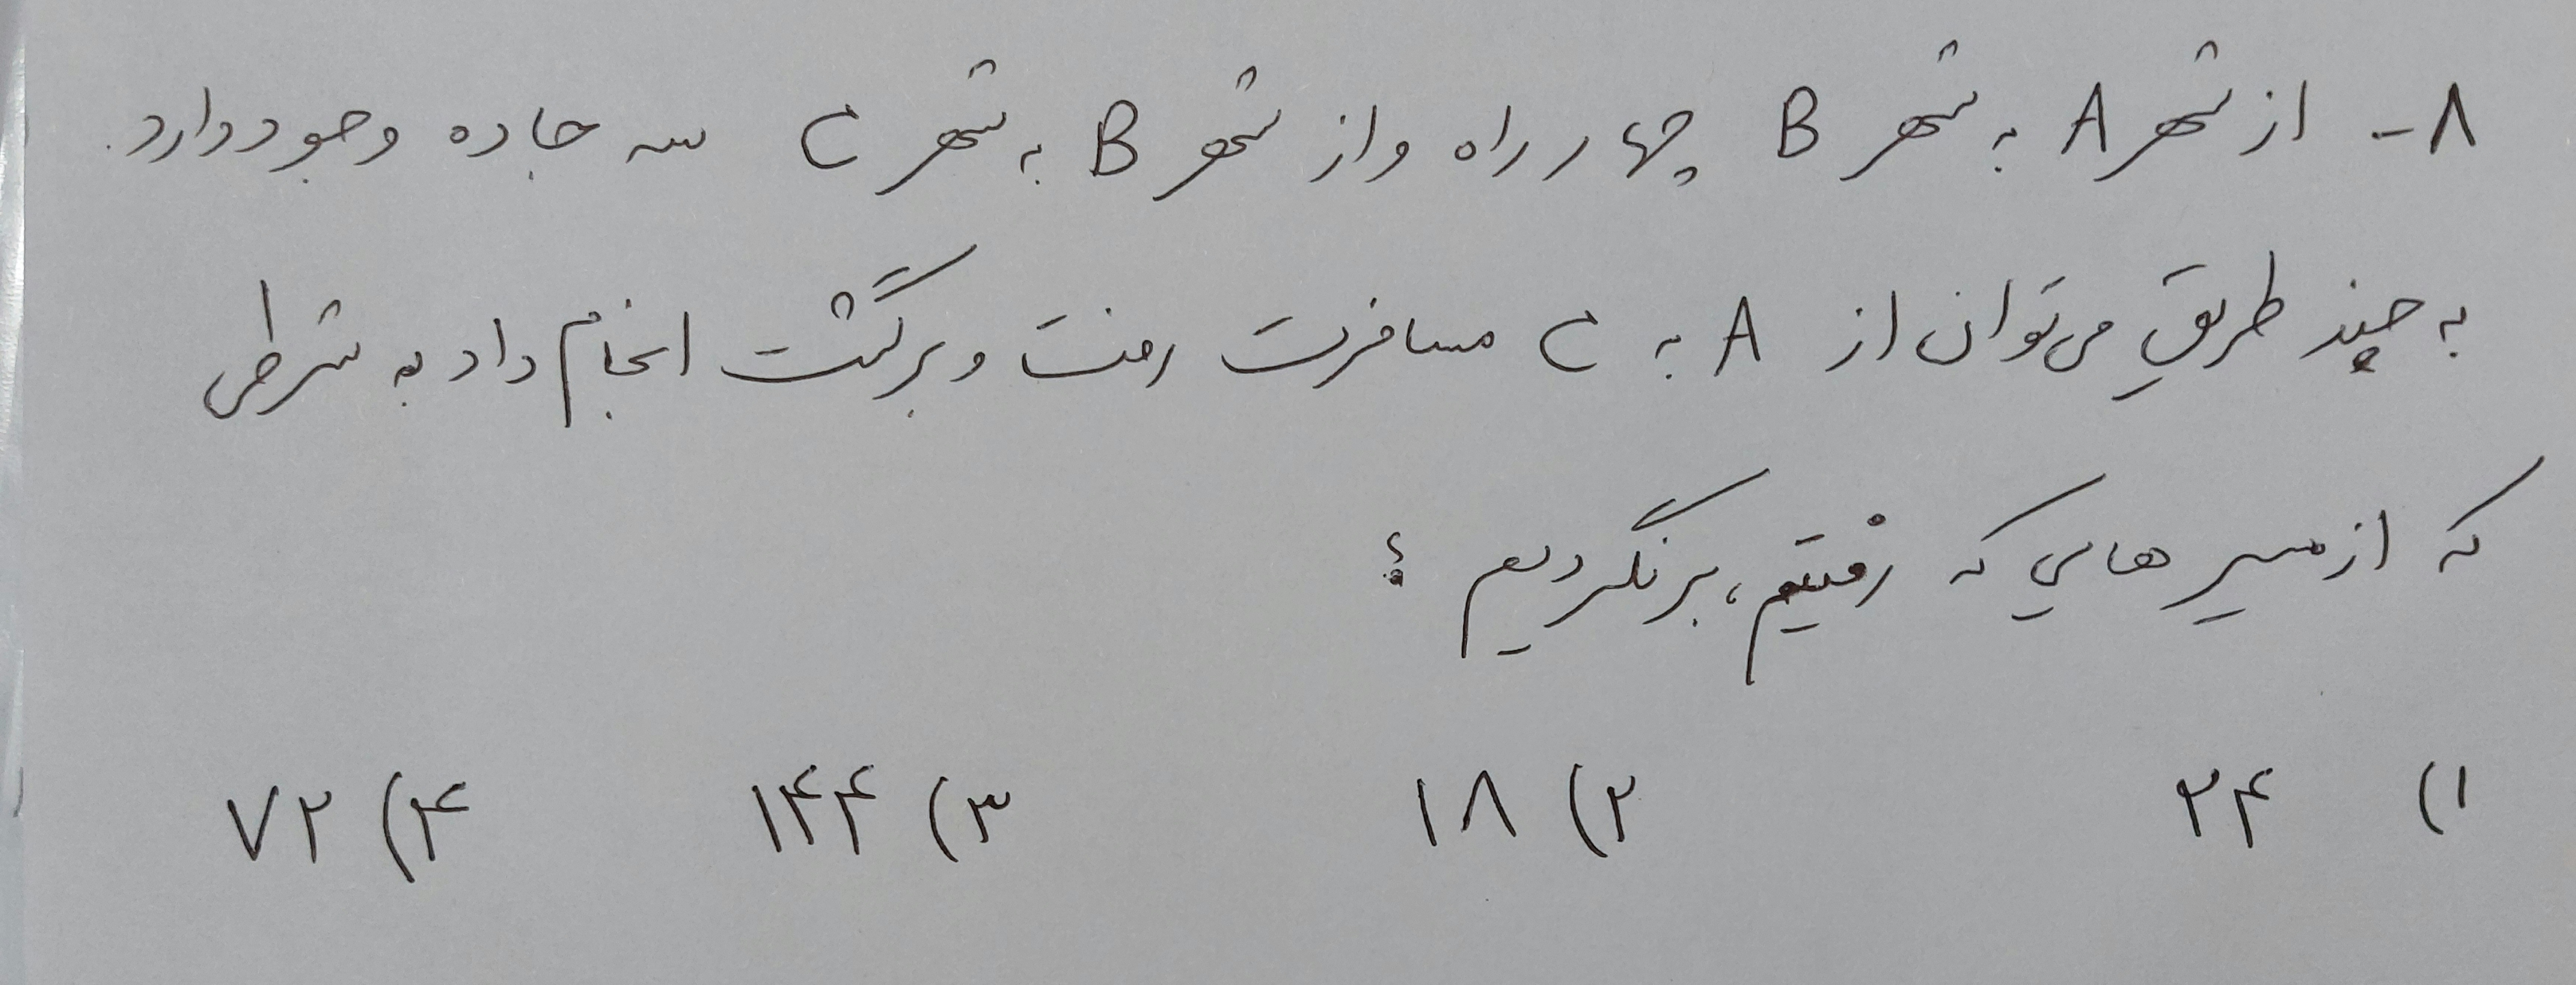 ۸- از شهر A به شهر B چهار راه و از شهر B به شهر C سه جاده وجود دارد.
به چند طریق می‌توان از A به C مسافرت رفت و برگشت انجام داد به شرطی
که از مسیرهایی که رفتیم، برنگردیم؟
۱) ۲۴ ۲) ۱۸ ۳) ۱۴۴ ۴) ۷۲